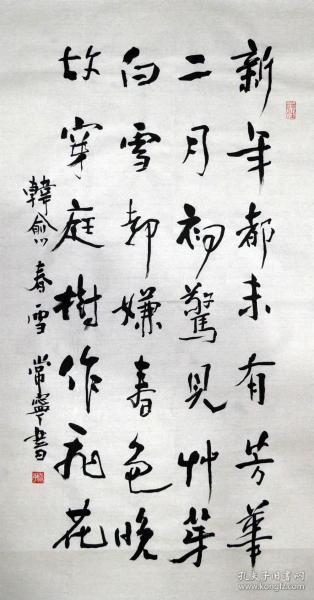 新年都未有芳華
二月初驚見艸芽
白雪却嫌春色晚
故穿庭樹作飛花
韓愈春雪 常寧書
孔夫子旧书网